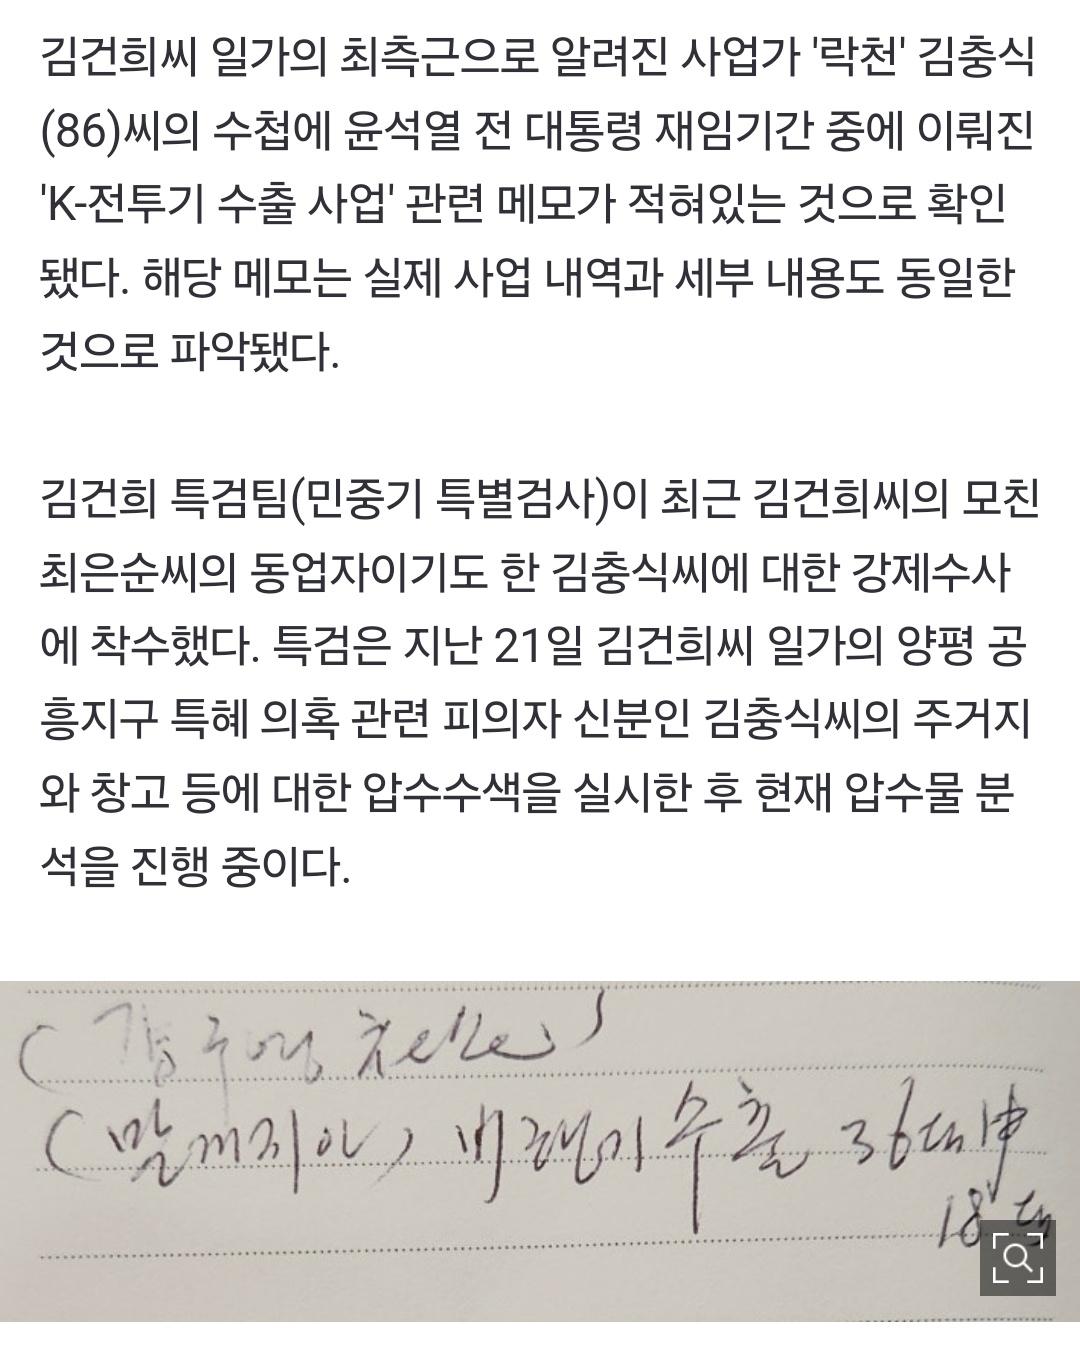 김건희씨 일가의 최측근으로 알려진 사업가 '락천' 김충식
(86)씨의 수첩에 윤석열 전 대통령 재임기간 중에 이뤄진
'K-전투기 수출 사업' 관련 메모가 적혀있는 것으로 확인
됐다. 해당 메모는 실제 사업 내역과 세부 내용도 동일한
것으로 파악됐다.
김건희 특검팀(민중기 특별검사)이 최근 김건희씨의 모친
최은순씨의 동업자이기도 한 김충식씨에 대한 강제수사
에 착수했다. 특검은 지난 21일 김건희씨 일가의 양평 공
흥지구 특혜 의혹 관련 피의자 신분인 김충식씨의 주거지
와 창고 등에 대한 압수수색을 실시한 후 현재 압수물 분
석을 진행 중이다.
(말레지아) 비행기 수출 36대 中
18대